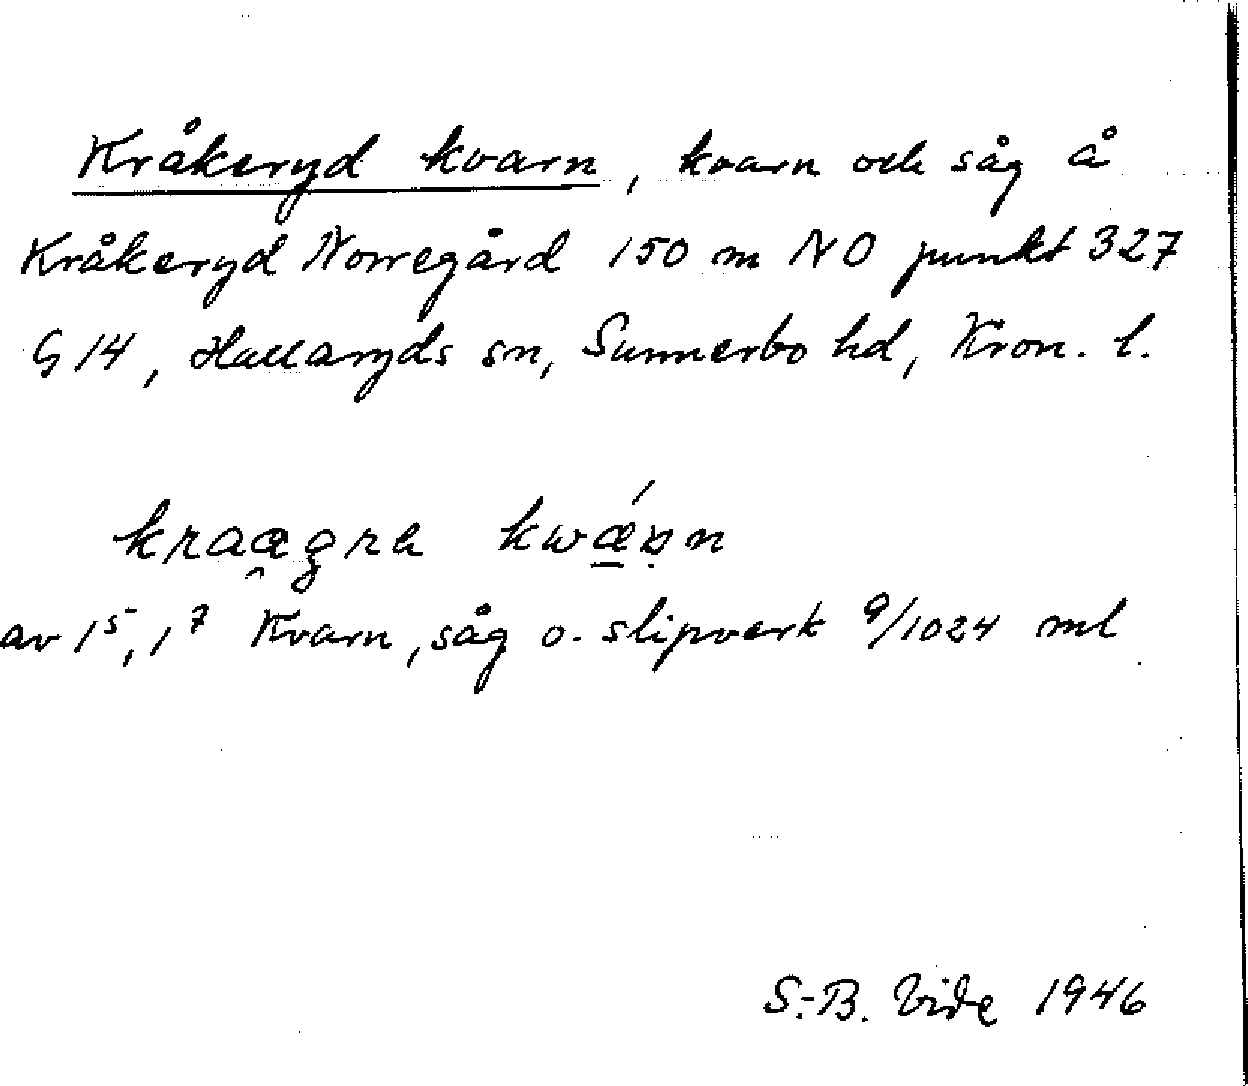 Kråkeryd kvarn, kvarn och såg å
Kråkeryd Norregård 150 m NO punkt 327
G 14, Hallaryds sn, Sunnerbo hd, Kron. l.
kraagra kwǽʀn
av 1⁵, 1⁷ Kvarn, såg o. slipverk 9/1024 ml
S.-B. Vide 1946